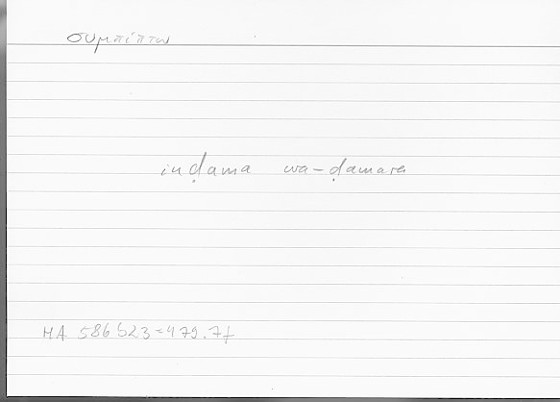 συμπίπτω
inḍama wa-ḍamara
HA 586 b23 = 479.7f